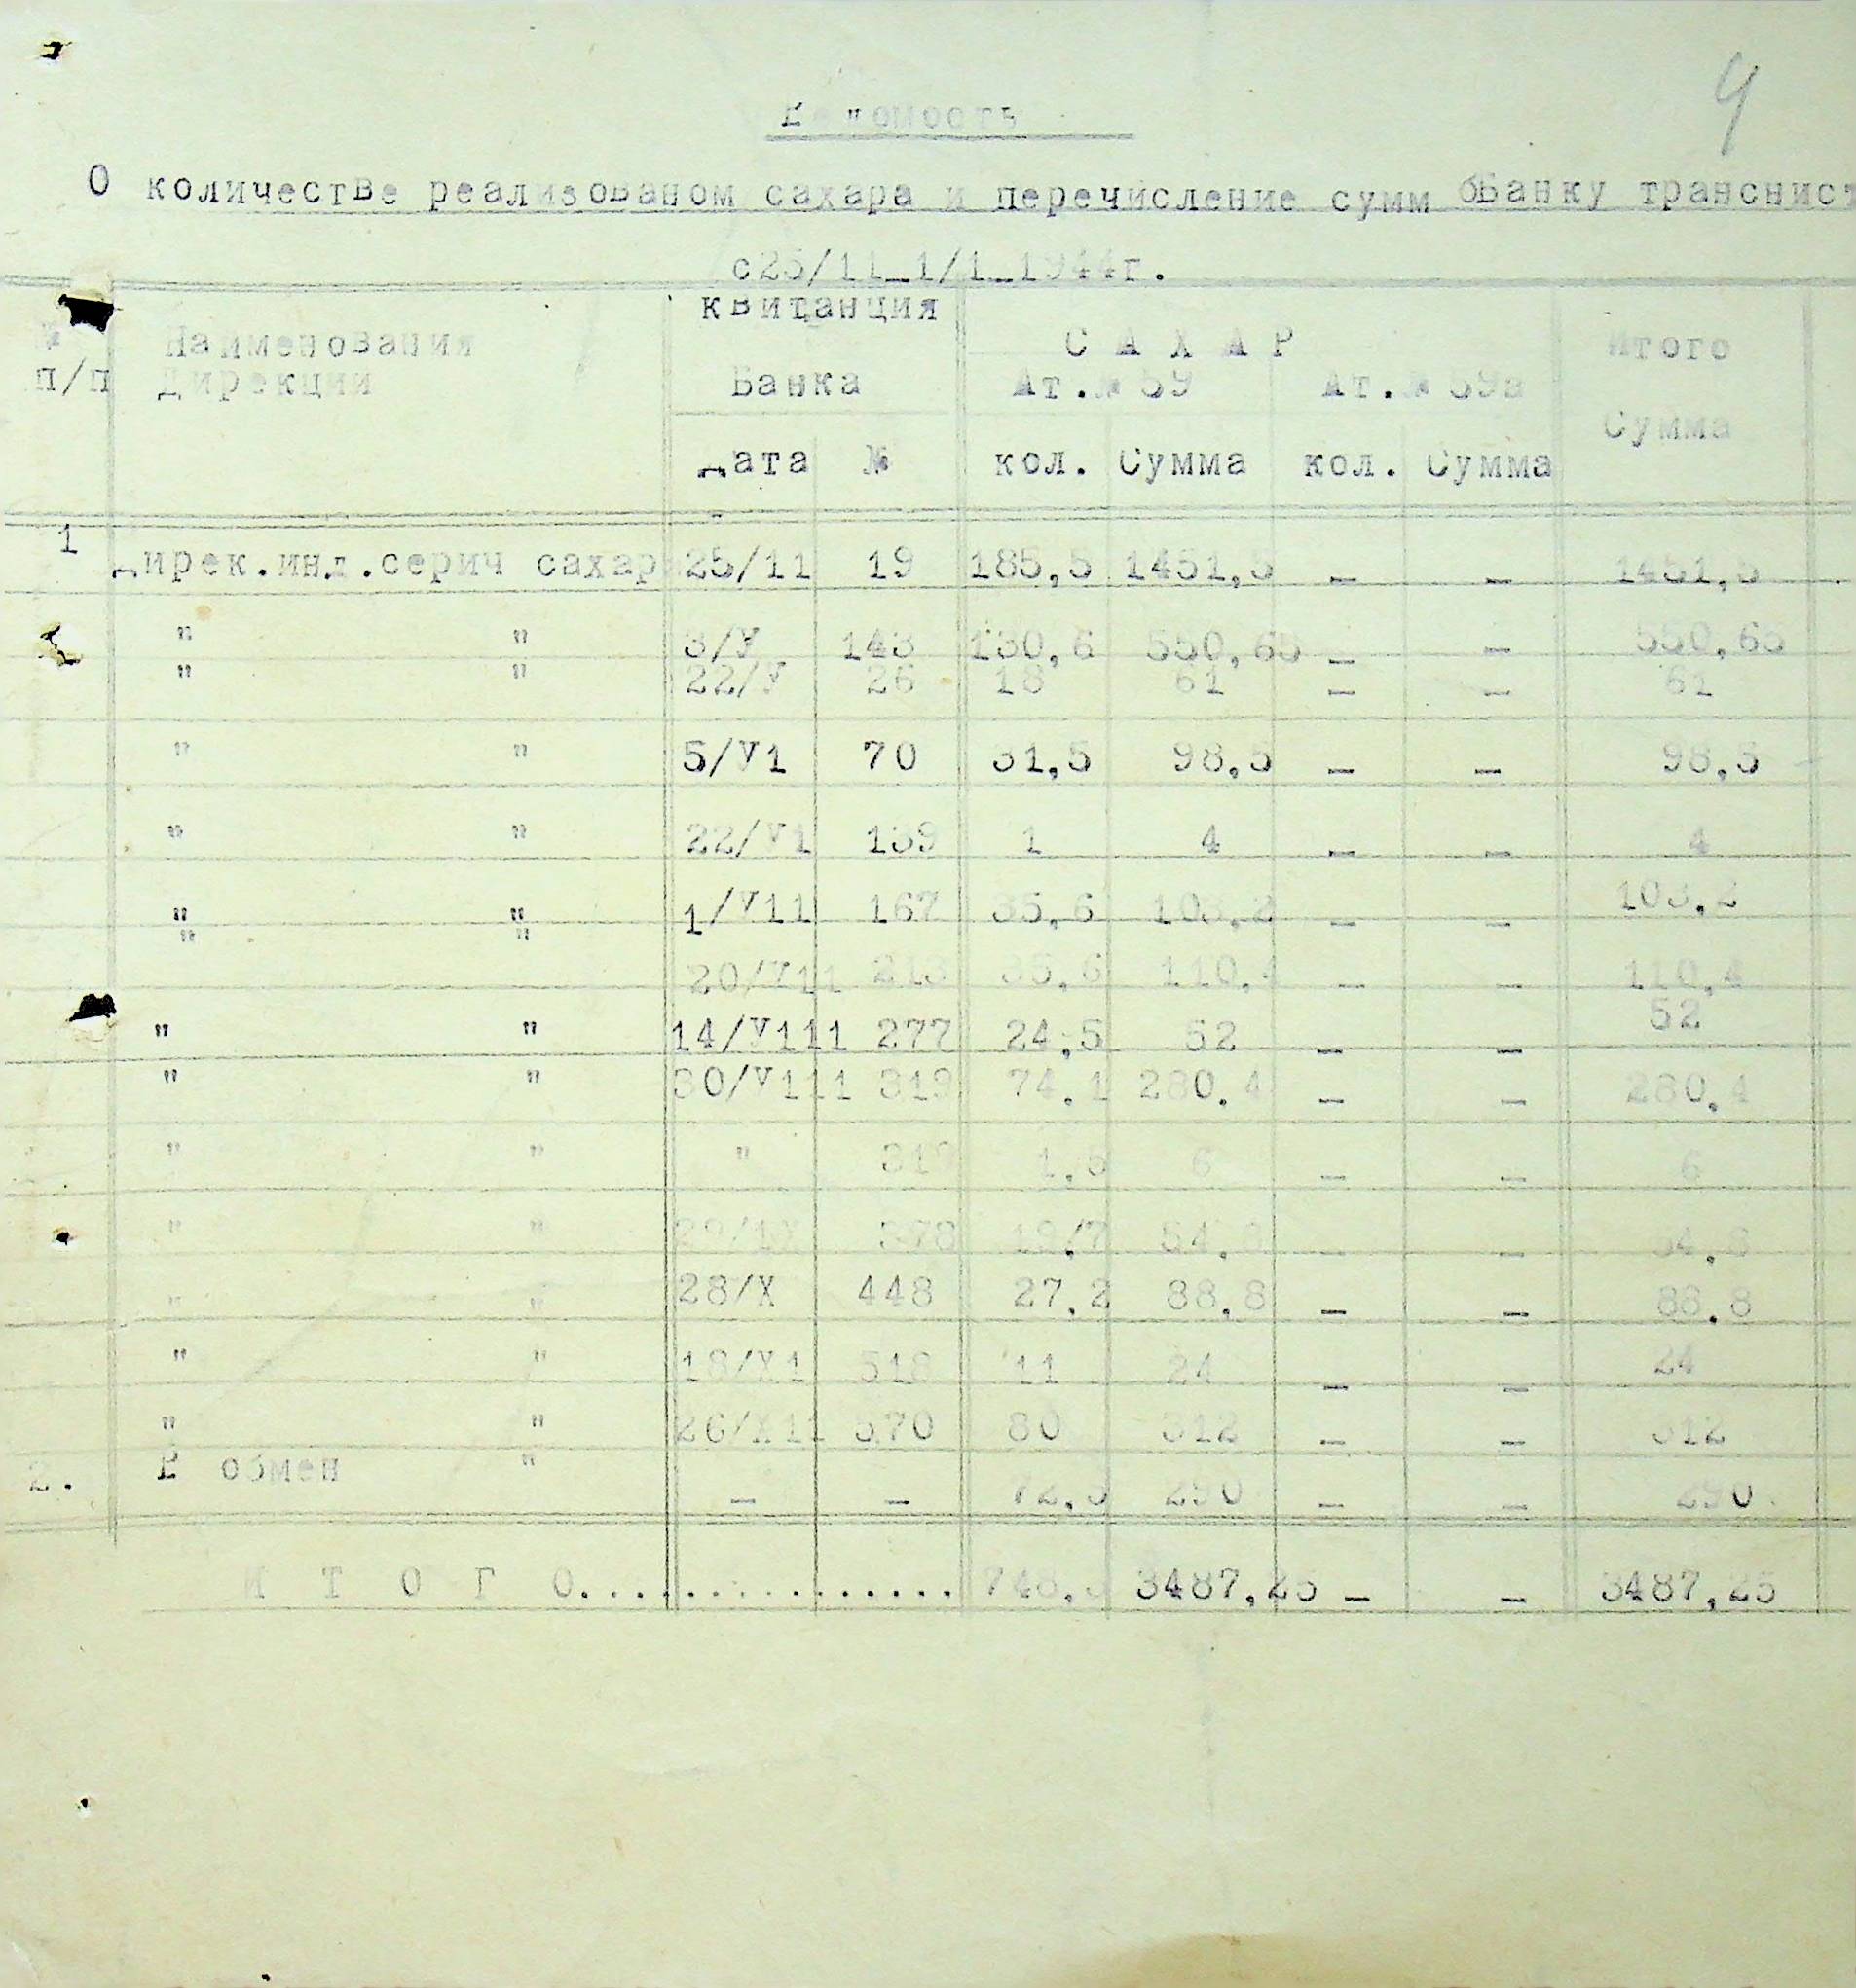 4
Ведомость
О количестве реализованом сахара и перечисление сумм бБанку транснист
с25/11_1/1_1944г.
№ п/п Наименования Дирекции квитанция Банка С А Х А Р Итого Сумма
Ат.№ 59 Ат.№ 59а
дата № кол. Сумма кол. Сумма
1 дирек.инд.серич сахар 25/11 19 185,5 1451,5 _ _ 1451,5
" " 3/У 143 130,6 550,65 _ _ 550,65
" " 22/У 26 18 61 _ _ 61
" " 5/У1 70 31,5 98,5 _ _ 98,5
" " 22/У1 139 1 4 _ _ 4
" " 1/У11 167 35,6 103,2 _ _ 103,2
" " 20/У11 213 35,6 110,4 _ _ 110,4
" " 14/У111 277 24,5 52 _ _ 52
" " 30/У111 319 74.1 280.4 _ _ 280.4
" " " 319 1.5 6 _ _ 6
" " 378 19,7 54.8 _ _ 54.8
" " 28/Х 448 27.2 88.8 _ _ 88.8
" " 18/Х1 518 11 24 _ _ 24
" " 26/Х11 570 80 312 _ _ 312
2. В обмен " _ _ 72.5 290 _ _ 290.
И Т О Г О................ 748,3 3487,25 _ _ 3487,25